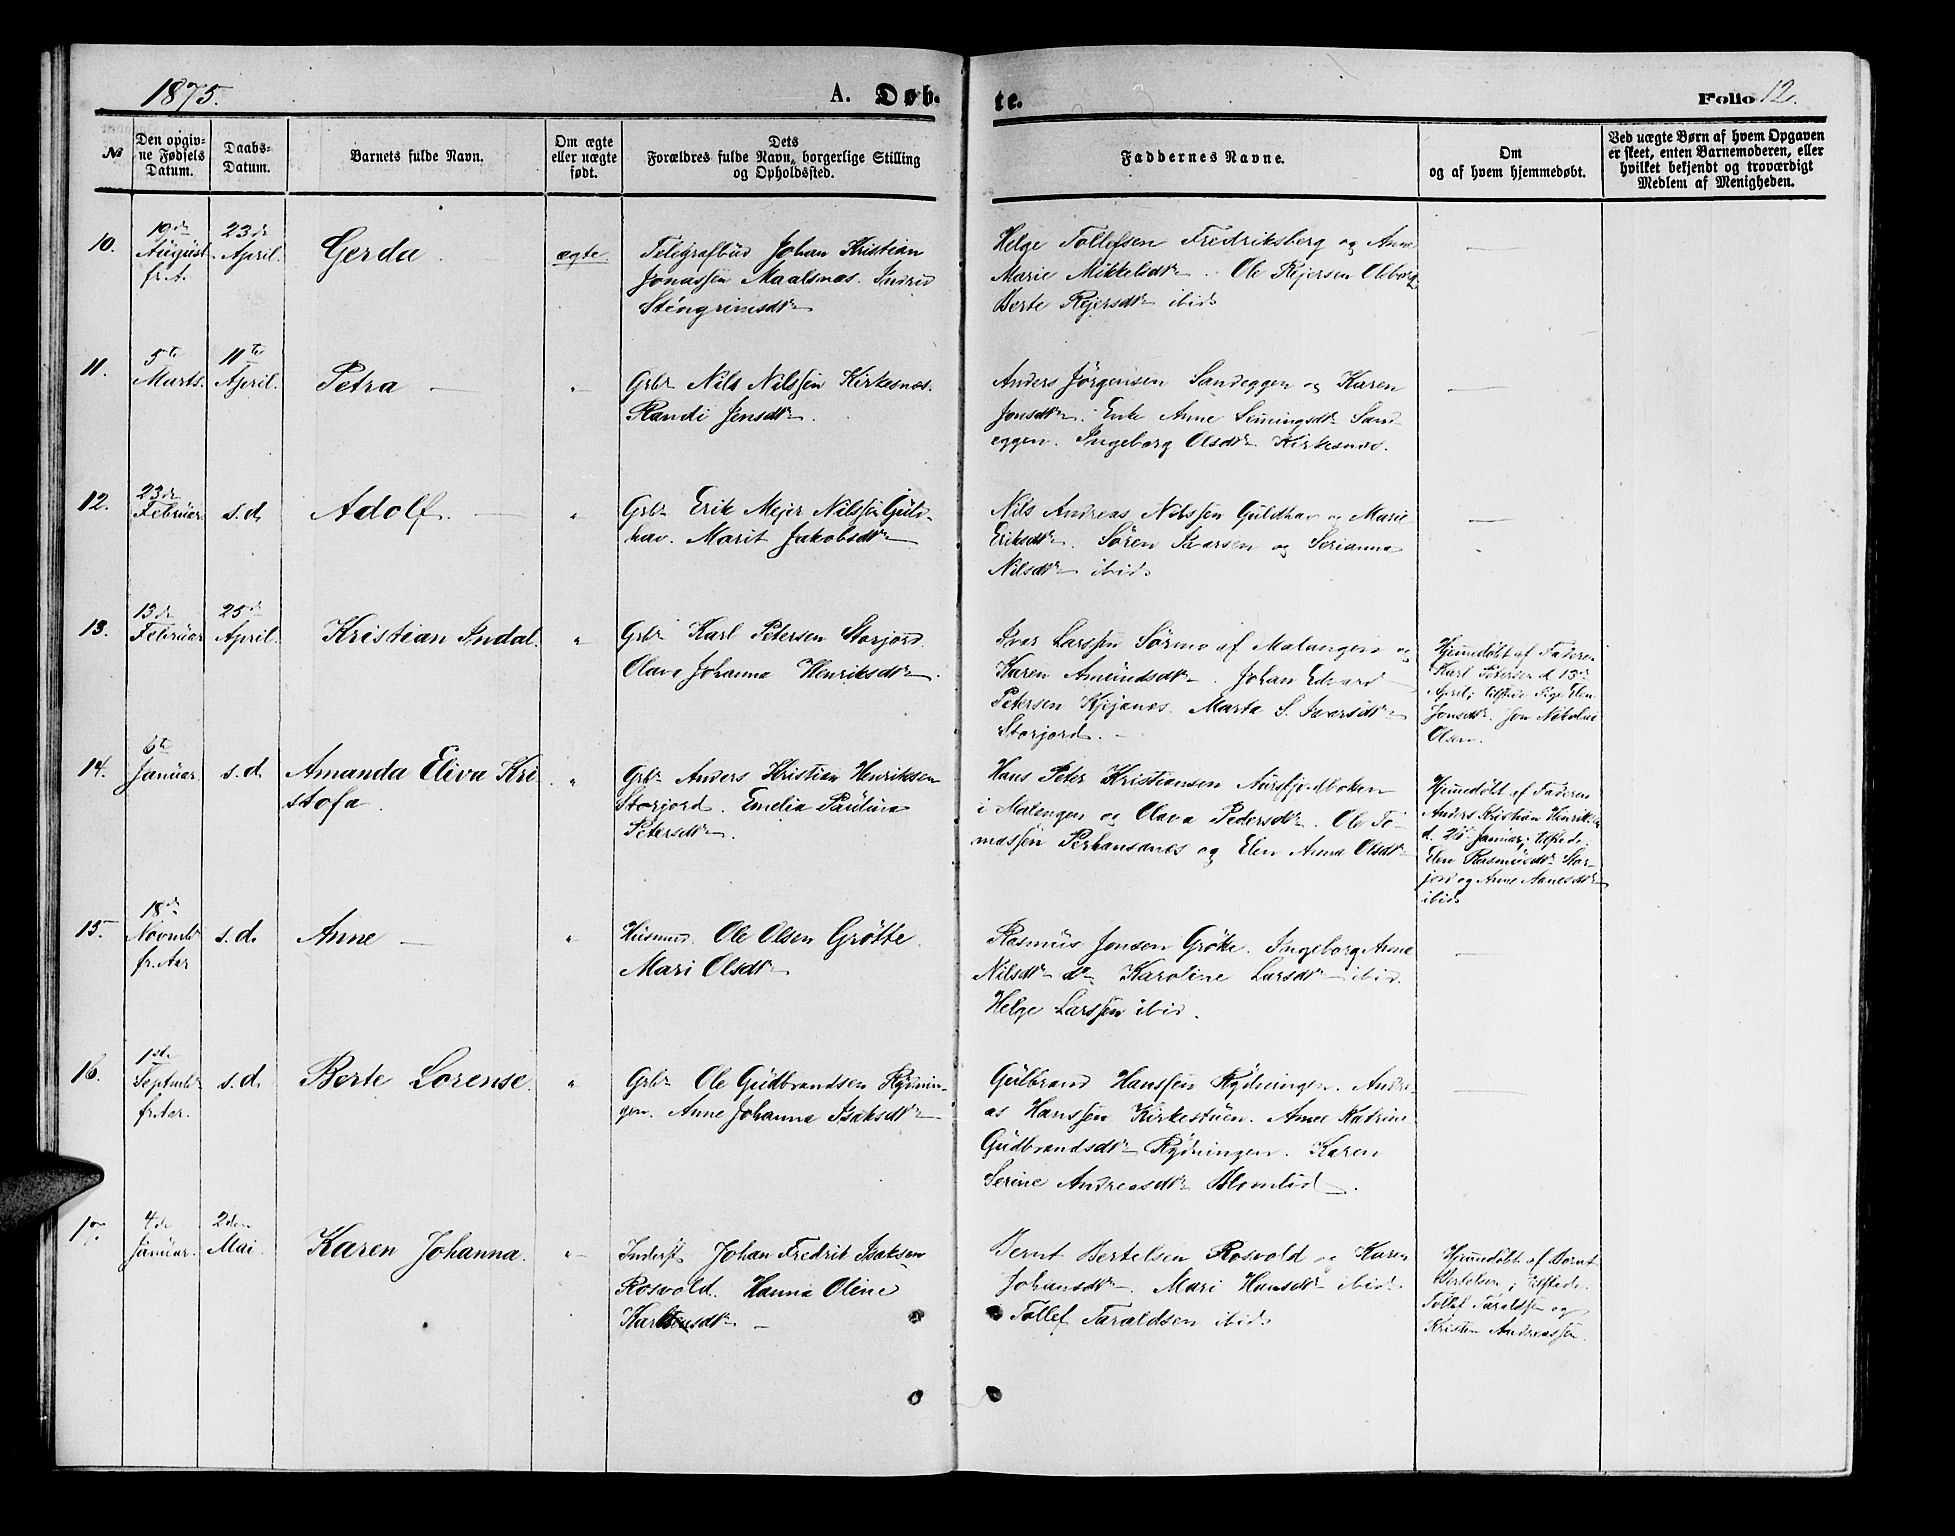 1875.
A. Døb-
te.
Folio 12.
№
Den opgiv-
ne Fødsels
Datum.
Daabs-
Datum.
Barnets fulde Navn.
Om ægte
eller uægte
født.
Dets
Forældres fulde Navn, borgerlige Stilling
og Opholdsted.
Faddernes Navne.
Om
og af hvem hjemmedøbt.
Ved uægte Børn af hvem Opgaven
er skeet, enten Barnemoderen, eller
hvilket bekjendt og troværdigt
Medlem af Menigheden.
10.
19de
August
fr. A.
23de
April.
Gerda
ægte
Telegrafbud Johan Kristian
Jonassen Maalsnæs. Indrid
Stengrimsdtr
Helge Tollefsen Fredriksberg og Anne
Marie Mikkelsdtr. Ole Rejersen Oleborg
Berte Rejersdtr ibid
11.
5te
Marts.
11te
April.
Petra —
"
Grbr Nils Nilssen Kirkesnæs.
Randi Jensdtr.
Anders Jörgensen Sandeggen og Karen
Jonsdtr. Enke Anne Simingsdtr Sand
eggen. Ingeborg Olsdtr Kirkesnæs.
12.
23de
Februar
s.d.
Adolf. —
"
Grbr Erik Mejer Nilssen Guld-
hav. Marit Jakobsdtr
Nils Andreas Nilssen Guldhav og Marie
Eriksdtr. Sören Ivarsen og Serianna
Nilsdtr ibid
13.
13de
Februar
25de
April.
Kristian Indal.
"
Grbr Karl Petersen Storjord.
Olava Johanna Henriksdtr.
Ivar Larssen Sörmo af Malangen og
Karen Amundsdtr. Johan Edvard
Petersen Kjejanes. Marta S. Ivarsdtr
Storjord. —
Hjemmedøbt af Faderen
Karl Petersen d. 15de
April; tilstede Pige Elen
Jonsdtr. Jon Nikolai
Olsen.
14.
6te
Januar.
s.d.
Amanda Eliva Kri
stofa.
"
Grbr Anders Kristian Henriksen
Storjord. Emelia Paulina
Petersdtr.
Hans Peter Kristiansen Aursfjordboten
i Malangen og Olava Pedersdtr. Ole To-
massen Perhansanæs og Elen Anna Olsdtr
Hjemmedøbt af Faderen
Anders Kristian Henriksen
d. 26 Januar; tilstede
Elen Rasmusdtr Stor-
jord og Anne Aanesdtr
ibid
15.
18de
Novmbr
fr. Aar
s.d.
Anne —
"
Husmd. Ole Olsen Grötte.
Mari Olsdtr
Rasmus Jonsen Gröke. Ingeborg Anna
Nilsdtr do Karoline Larsdtr ibid
Helge Larssen ibid.
16.
1ste
Septmbr
fr. Aar.
s.d.
Berte Lorense.
"
Grbr Ole Gudbrandsen Rydnin-
gen. Anne Johanna Isaksdtr
Gulbrand Hanssen Rydningen. Andre-
as Hanssen Kirkestuen. Anne Katrine
Gudbrandsdtr Rydningen. Karen
Serine Andreasdtr Blomlid.
17.
4de
Januar.
2den
Mai.
Karen Johanna.
"
Inderst Johan Fredrik Isaksen
Rosvold. Hanna Oline
Karlsdtr —
Bernt Bertelsen Rosvold og Karen
Johansdtr. Mari Hansdtr ibid
Tollef Taraldsen ibid
Hjemmedøbt af Bernt
Bertelsen; tilstede
Tollef Taraldsen og
Kristen Andreassen.